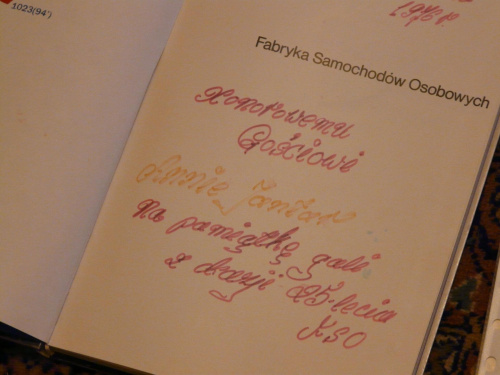 1023(94')
1976 r.
Fabryka Samochodów Osobowych
Honorowemu
Gościowi
Annie Jantar
na pamiątkę gali
z okazji 25-lecia
FSO